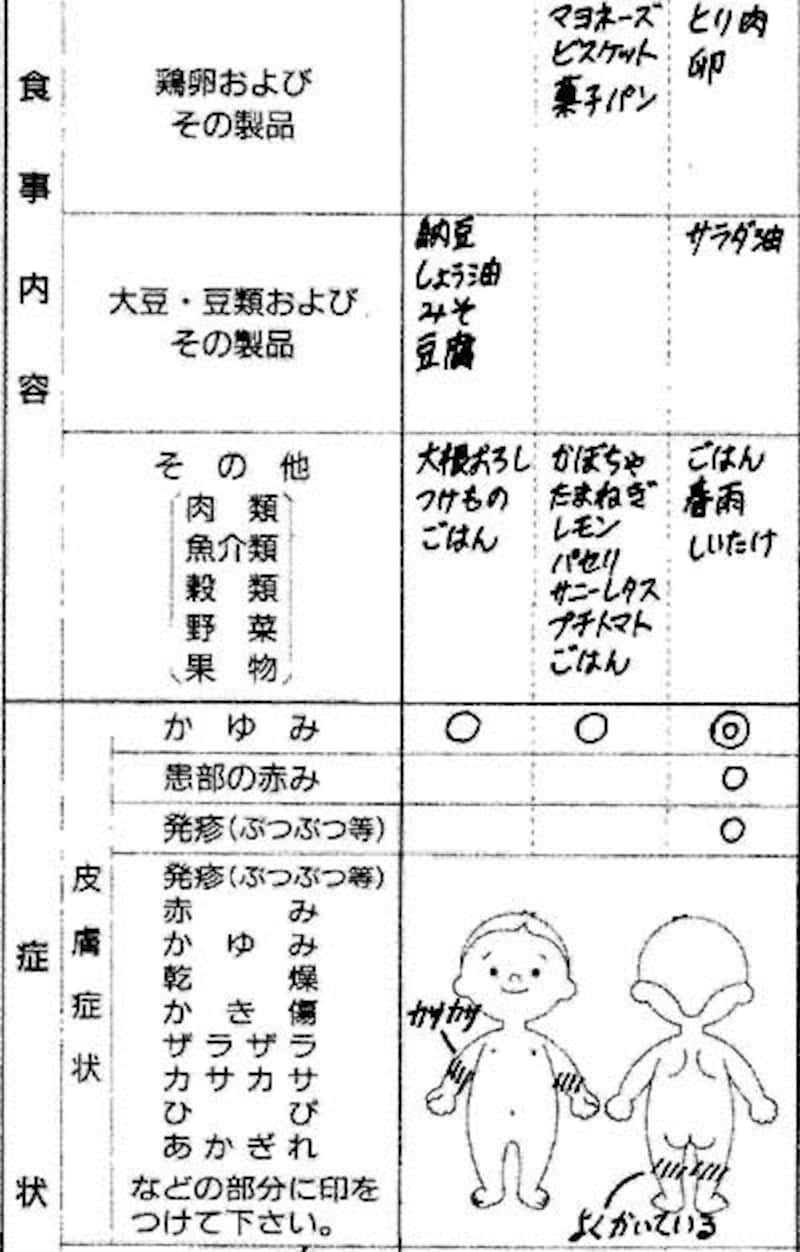 食事内容
鶏卵および
その製品
マヨネーズ
ビスケット
菓子パン
とり肉
卵
大豆・豆類および
その製品
納豆
しょう油
みそ
豆腐
サラダ油
その他
肉類
魚介類
穀類
野菜
果物
大根おろし
つけもの
ごはん
かぼちゃ
たまねぎ
レモン
パセリ
サニーレタス
プチトマト
ごはん
ごはん
春雨
しいたけ
症状
かゆみ
○ ○ ◎
患部の赤み
○
発疹(ぶつぶつ等)
○
皮膚症状
発疹(ぶつぶつ等)
赤み
かゆみ
乾燥
かき傷
ザラザラ
カサカサ
ひび
あかぎれ
などの部分に印を
つけて下さい。
カサカサ
よくかいている